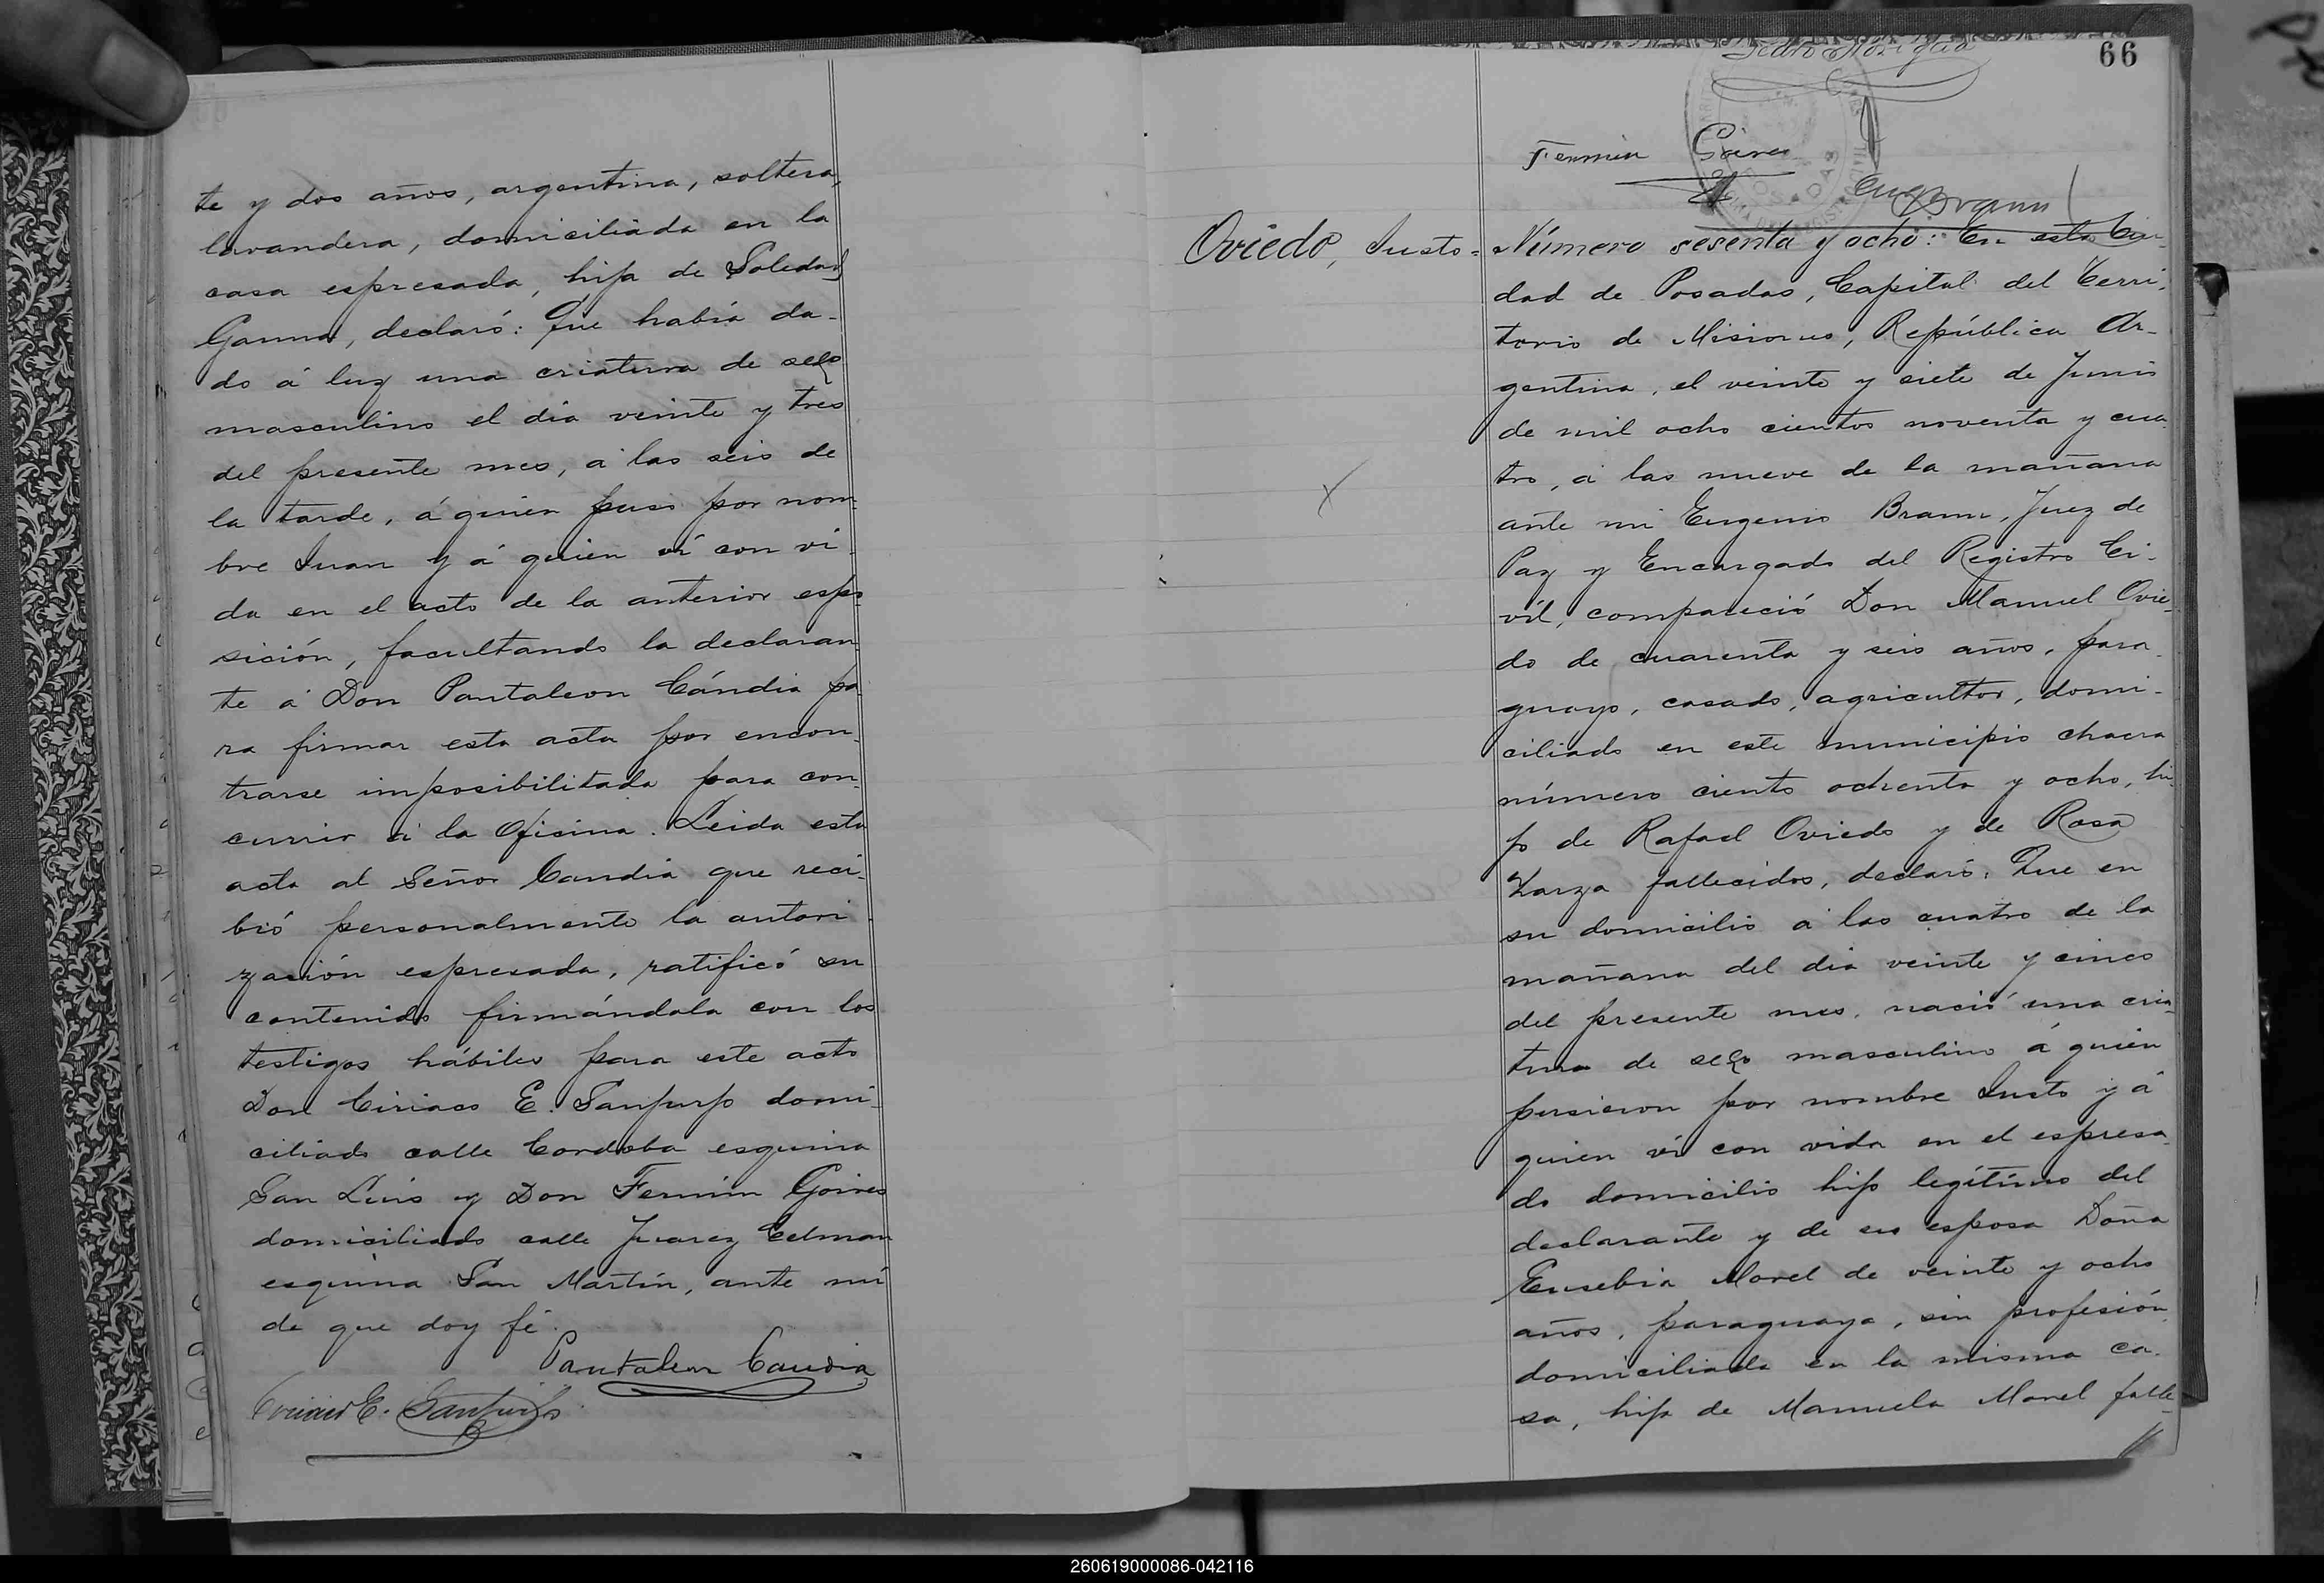 te y dos años, argentina, soltera,
lavandera, domiciliada en la
casa espresada, hija de Soledad
Gauna, declaró: Que habia da-
do á luz una criatura de sexo
masculino el dia veinte y tres
del presente mes, á las seis de
la tarde, á quien puso por nom-
bre Juan y á quien ví con vi-
da en el acto de la anterior espo-
sición, facultando la declaran-
te á Don Pantaleon Cándia pa-
ra firmar esta acta por encon-
trarse imposibilitada para con-
currir á la Oficina. Leida esta
acta al Señor Candia que reci-
bió personalmente la autori-
zación espresada, ratificó su
contenido firmándola con los
testigos hábiles para este acto
Don Ciriaco E. Sanjurjo domi-
ciliado calle Cordoba esquina
San Luis y Don Fermin Goires
domiciliado calle Juarez Celman
esquina San Martin, ante mí
de que doy fé.
Pantaleon Candia
Ciriaco E. Sanjurjo
66
Pedro Noriega
Fermin
Eug Braun
Oviedo, Justo=
Número sesenta y ocho: En esta Ciu-
dad de Posadas, Capital del Terri-
torio de Misiones, República Ar-
gentina, el veinte y siete de Junio
de mil ocho cientos noventa y cua-
tro, á las nueve de la mañana
ante mi Eugenio Braun, Juez de
Paz y Encargado del Registro Ci-
vil, compareció Don Manuel Ovie-
do de cuarenta y seis años, para-
guayo, casado, agricultor, domi-
ciliado en este municipio chacra
número ciento ochenta y ocho, hi-
jo de Rafael Oviedo y de Rosa
Zarza fallecidos, declaró: Que en
su domicilio á las cuatro de la
mañana del dia veinte y cinco
del presente mes, nació una cria-
tura de sexo masculino á quien
pusieron por nombre Justo y á
quien ví con vida en el espresa-
do domicilio hijo legítimo del
declarante y de su esposa Doña
Eusebia Morel de veinte y ocho
años, paraguaya, sin profesión,
domiciliada en la misma ca-
sa, hija de Manuela Morel falle-
260619000086-042116